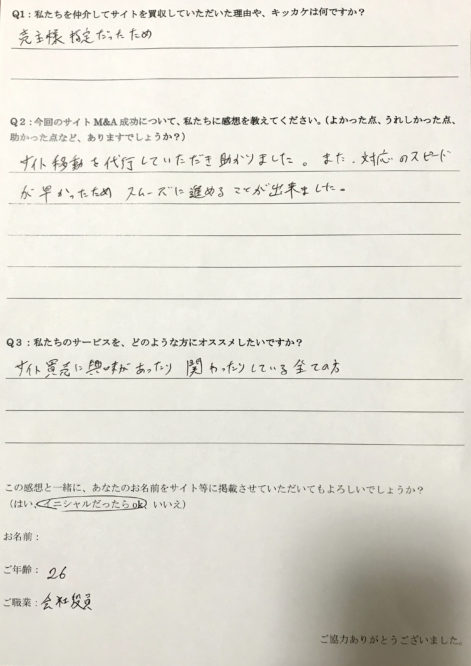 Q1：私たちを仲介してサイトを買収していただいた理由や、キッカケは何ですか？
売主様指定だったため
Q2：今回のサイトM&A成功について、私たちに感想を教えてください。（よかった点、うれしかった点、
助かった点など、ありますでしょうか？）
サイト移動を代行していただき助かりました。また、対応のスピード
が早かったため スムーズに進めることが出来ました。
Q3：私たちのサービスを、どのような方にオススメしたいですか？
サイト買売に興味があったり 関わったりしている全ての方
この感想と一緒に、あなたのお名前をサイト等に掲載させていただいてもよろしいでしょうか？
（はい、イニシャルだったらok、いいえ）
お名前：
ご年齢： 26
ご職業：会社役員
ご協力ありがとうございました。